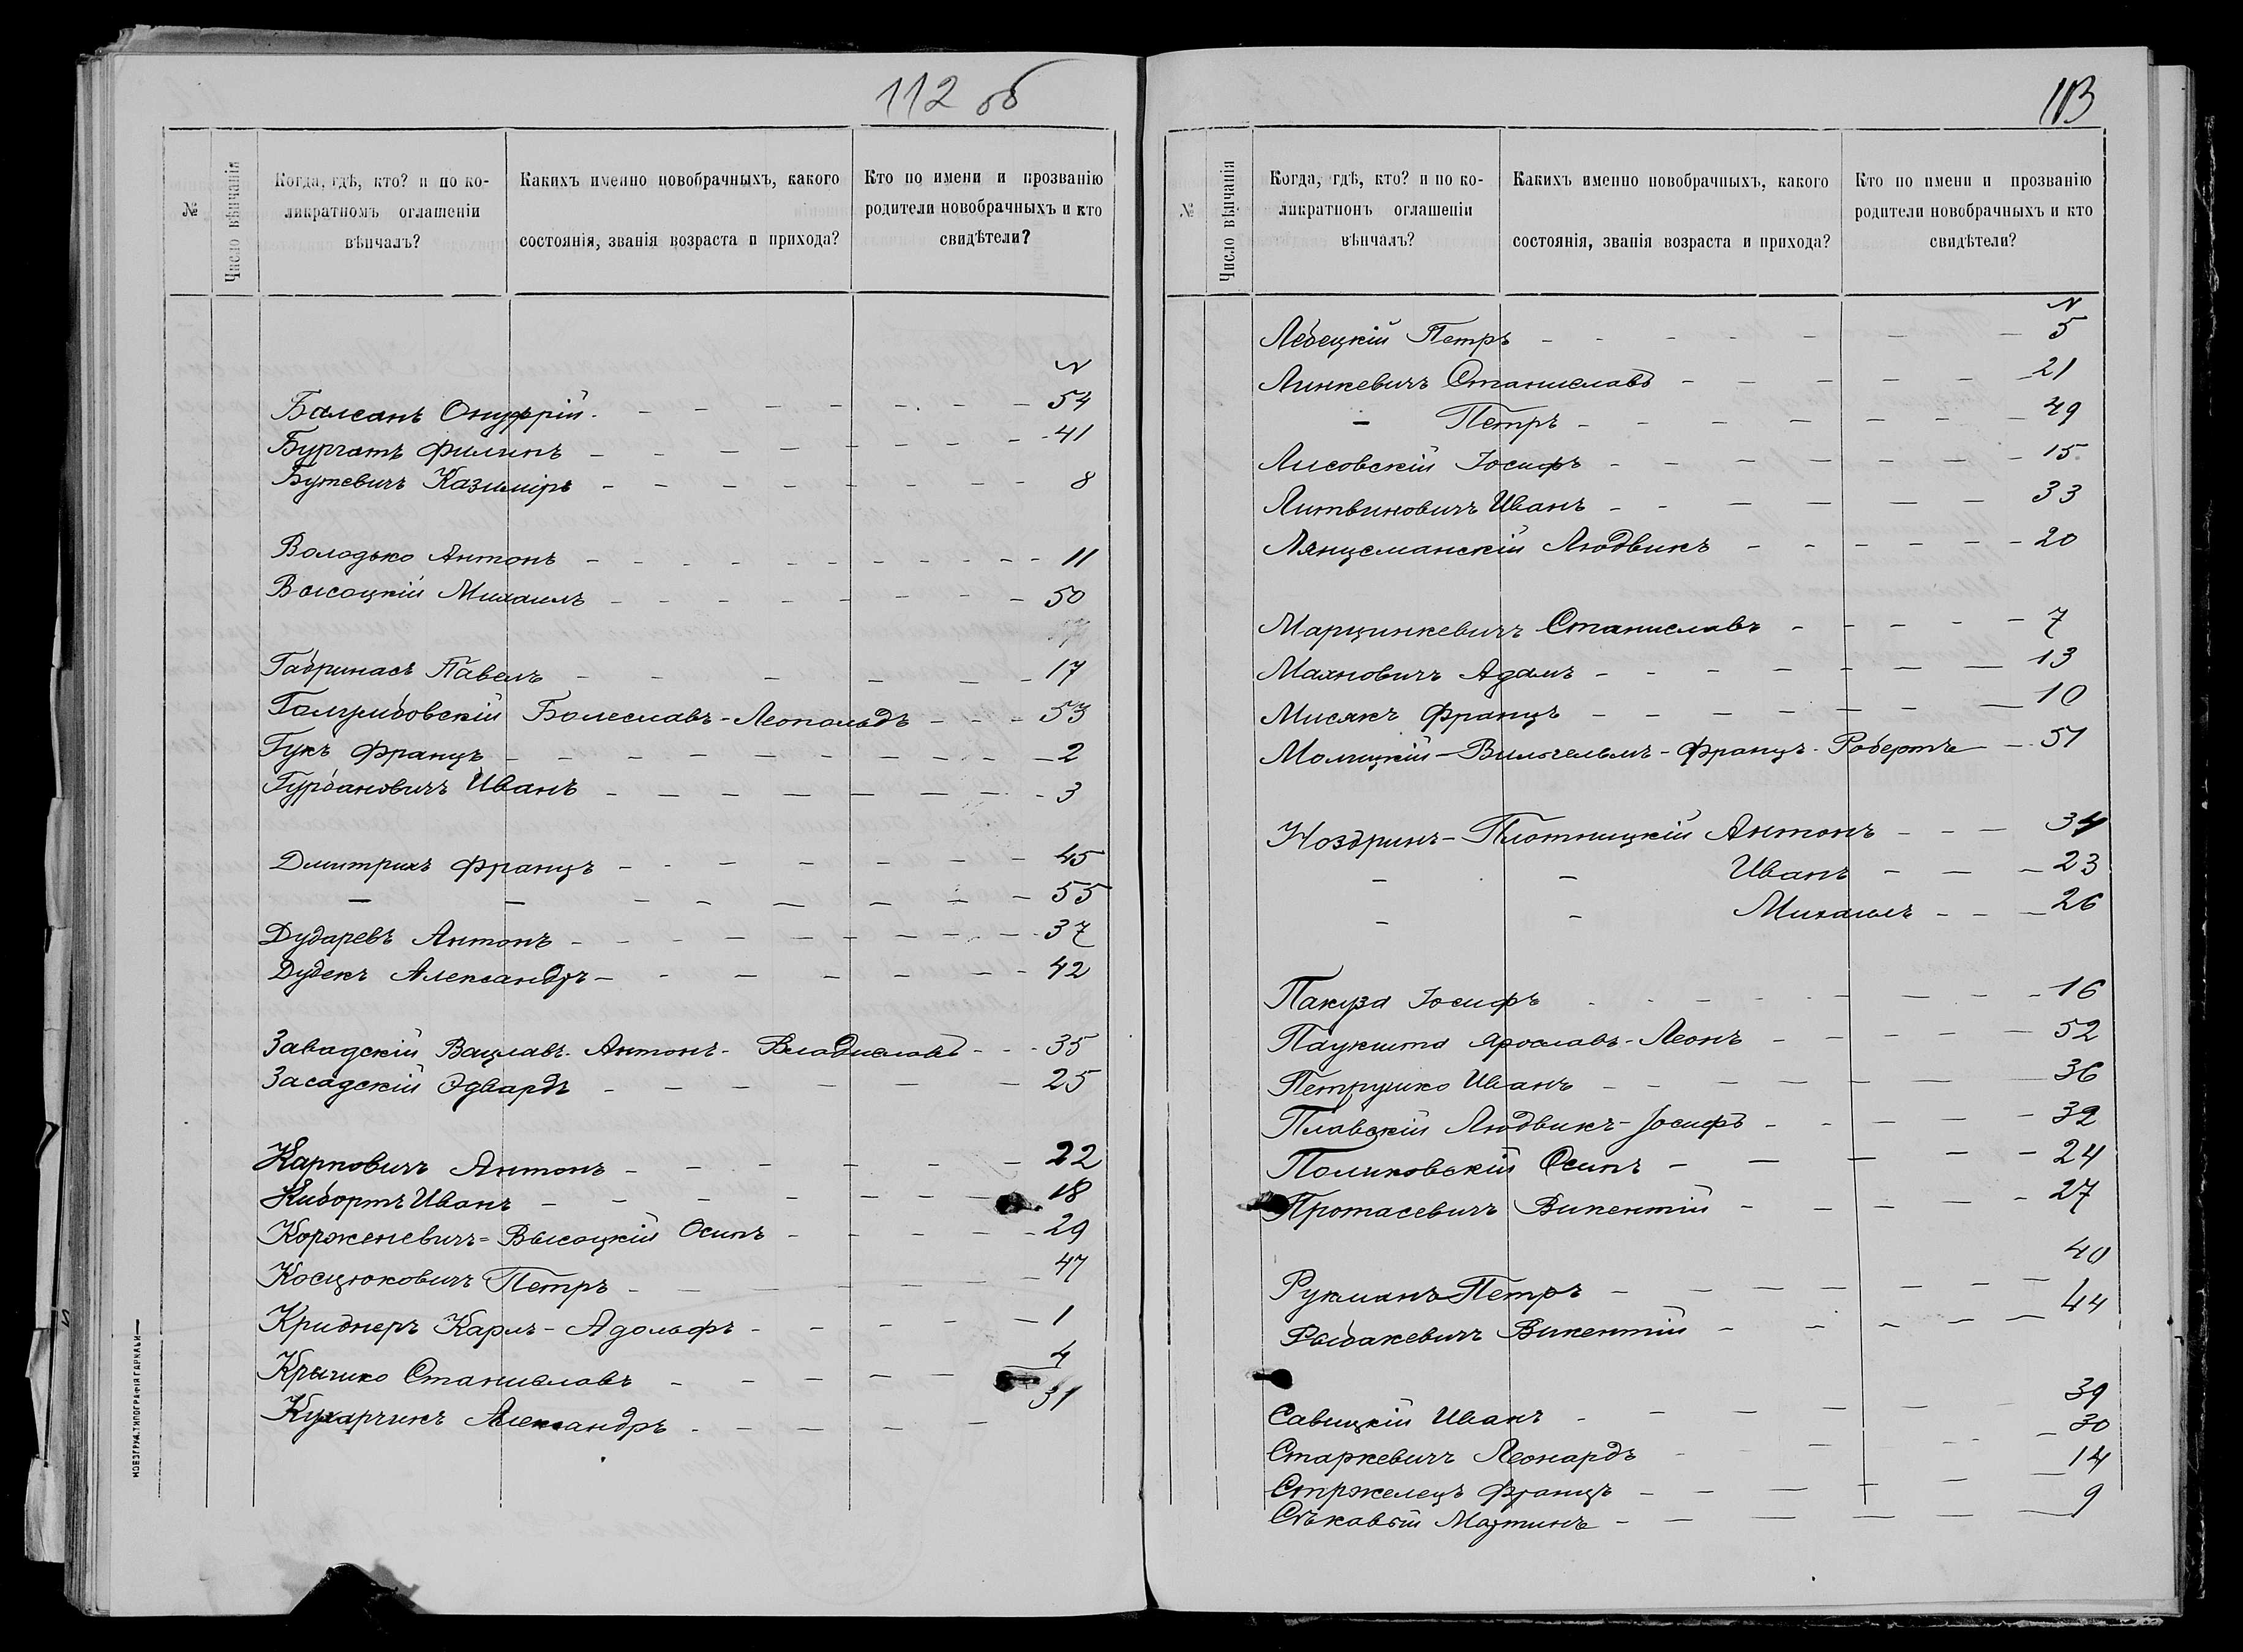 112 об
№
Число вѣнчанія
Когда, гдѣ, кто? и по ко-
ликратномъ оглашеніи
вѣнчалъ?
Какихъ именно новобрачныхъ, какого
состоянія, званія возраста и прихода?
Кто по имени и прозванію
родители новобрачныхъ и кто
свидѣтели?
N
Балсанъ Онуфрій - 54
Бургатъ Филипъ - 41
Бутевичъ Казиміръ - 8
Володько Антонъ - 11
Высоцкій Михаилъ - 50
Габринасъ Павелъ - 17
Болеславъ-Леопольдъ - 53
Гукъ Францъ - 2
Гурбановичъ Иванъ - 3
Дмитрихъ Францъ - 45
— — 55
Дударевъ Антонъ - 37
Дудекъ Александръ - 42
Завадскій Вацлавъ-Антонъ-Владиславъ - 35
Засадскій Эдвардъ - 25
Карповичъ Антонъ - 22
Кибортъ Иванъ - 18
Корженевичъ=Высоцкій Осипъ - 29
Косцюковичъ Петръ - 47
Криднеръ Карлъ-Адольфъ - 1
Крычко Станиславъ - 4
Кухарчикъ Александръ - 31
НОВОГРУД. ТИПОГРАФІЯ ГАРКАВИ
113
№
Число вѣнчанія
Когда, гдѣ, кто? и по ко-
ликратномъ оглашеніи
вѣнчалъ?
Какихъ именно новобрачныхъ, какого
состоянія, званія возраста и прихода?
Кто по имени и прозванію
родители новобрачныхъ и кто
свидѣтели?
N
Лебецкій Петръ - 5
Линкевичъ Станиславъ - 21
— Петръ - 49
Лисовскій Іосифъ - 15
Литвиновичъ Иванъ - 33
Лянцеманскій Людвикъ - 20
Марцинкевичъ Станиславъ - 7
Махновичъ Адамъ - 13
Мисякъ Францъ - 10
Молицкій-Вильгельмъ-Францъ-Робертъ - 51
Ноздринъ-Плотницкій Антонъ - 34
— — Иванъ - 23
— — Михаилъ - 26
Пакуза Іосифъ - 16
Паукшта Ярославъ-Леонъ - 52
Петрушко Иванъ - 36
Плавскій Людвикъ-Іосифъ - 32
Поликовскій Осипъ - 24
Протасевичъ Викентій - 27
Рукманъ Петръ - 40
Рыбакевичъ Викентій - 44
Савицкій Иванъ - 39
Старкевичъ Леонардъ - 30
Стржелецъ Францъ - 14
Мартинъ - 9